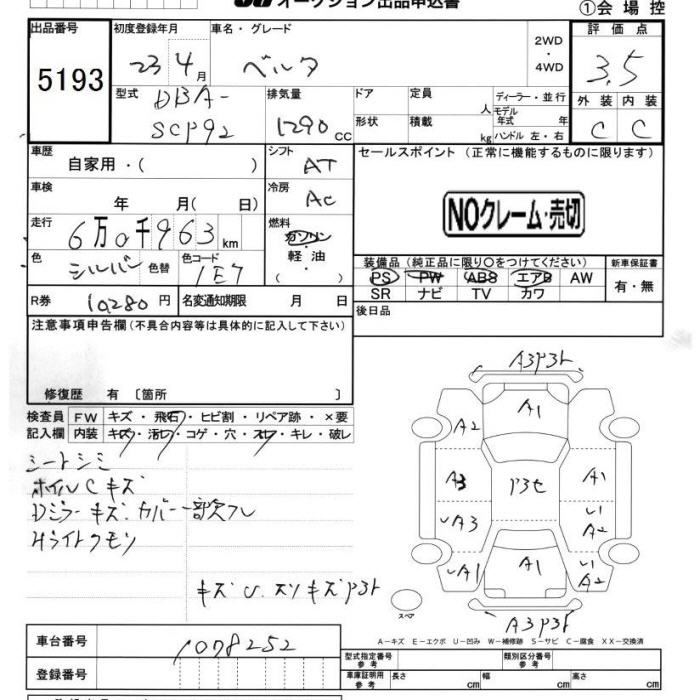 オークション出品申込書
①会場控
出品番号 初度登録年月 車名・グレード 2WD・4WD 評価点
5193 23 4月 ベルタ 3.5
型式 DBA-SCP92 排気量 1290 cc
ドア 定員 人 ディーラー・並行 モデル年式 年
形状 積載 kg ハンドル 左・右
外装 内装
C C
車歴 自家用・( )
シフト AT
セールスポイント (正常に機能するものに限ります)
NOクレーム・売切
車検 年 月( 日)
冷房 AC
走行 6万0千963km
燃料 ガソリン・軽油・( )
色 シルバー 色替 色コード 1E7
装備品(純正品に限り○をつけてください) 新車保証書
PS PW ABS エアB AW 有・無
SR ナビ TV カワ
R券 10,280円 名変通知期限 月 日
後日品
注意事項申告欄(不具合内容等は具体的に記入して下さい)
修復歴 有〔箇所 〕
検査員記入欄 FW キズ・飛石・ヒビ割・リペア跡・×要
内装 キズ・汚レ・コゲ・穴・スレ・キレ・破レ
シートシミ
ホイルCキズ
Dミラーキズ.カバー一部欠フレ
Hライトクモリ
キズU.スリキズP3ト
A3P3ト
A1
A2
A3 P3セ A1
A3 A2
A1 A1 A2
スペア
A3P3ト
A-キズ E-エクボ U-凹み W-補修跡 S-サビ C-腐食 XX-交換済
車台番号 1078252
型式指定番号 参考 類別区分番号 参考
登録番号
車庫証明用 参考 長さ cm 幅 cm 高さ cm